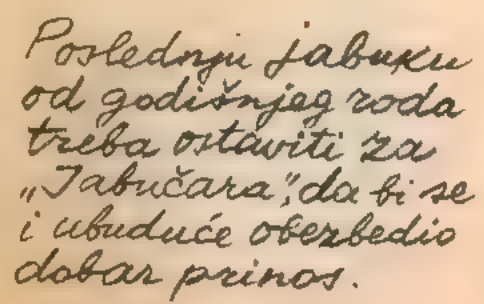 Poslednju jabuku
od godišnjeg roda
treba ostaviti za
„Jabučara”, da bi se
i ubuduće obezbedio
dobar prinos.